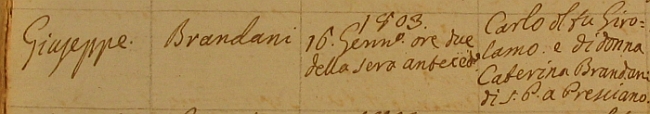 Giuseppe. Brandani
1803.
16. Genn.º ore due
della sera anteced.
Carlo del fu Giro=
lamo. e di donna
Caterina Brandani
di S. P. a Presciano.